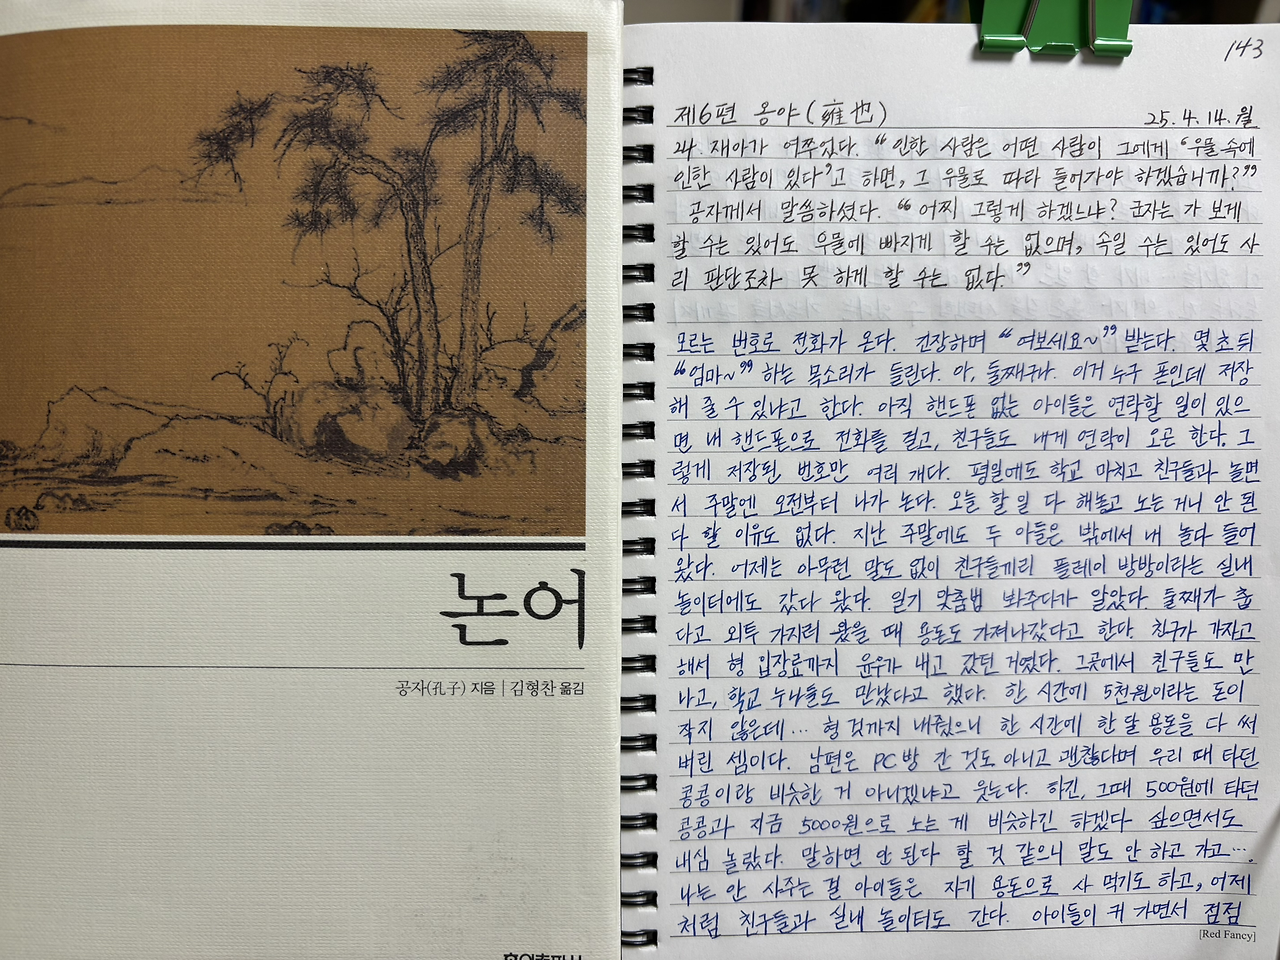 논어
공자(孔子) 지음 | 김형찬 옮김
143
제6편 옹야(雍也) 25.4.14.월
24. 재아가 여쭈었다. "인한 사람은 어떤 사람이 그에게 '우물 속에
인한 사람이 있다'고 하면, 그 우물로 따라 들어가야 하겠습니까?"
공자께서 말씀하셨다. "어찌 그렇게 하겠느냐? 군자는 가 보게
할 수는 있어도 우물에 빠지게 할 수는 없으며, 속일 수는 있어도 사
리 판단조차 못 하게 할 수는 없다."
모르는 번호로 전화가 온다. 긴장하며 "여보세요~" 받는다. 몇 초 뒤
"엄마~" 하는 목소리가 들린다. 아, 둘째구나. 이거 누구 폰인데 저장
해 줄 수 있냐고 한다. 아직 핸드폰 없는 아이들은 연락할 일이 있으
면 내 핸드폰으로 전화를 걸고, 친구들도 내게 연락이 오곤 한다. 그
렇게 저장된 번호만 여러 개다. 평일에도 학교 마치고 친구들과 놀면
서 주말엔 오전부터 나가 논다. 오늘 할 일 다 해놓고 노는 거니 안 된
다 할 이유도 없다. 지난 주말에도 두 아들은 밖에서 내 놀다 들어
왔다. 어제는 아무런 말도 없이 친구들끼리 플레이 방방이라는 실내
놀이터에도 갔다 왔다. 일기 맞춤법 봐주다가 알았다. 둘째가 춥
다고 외투 가지러 왔을 때 용돈도 가져나갔다고 한다. 친구가 가자고
해서 형 입장료까지 윤우가 내고 갔던 거였다. 그곳에서 친구들도 만
나고, 학교 누나들도 만났다고 했다. 한 시간에 5천원이라는 돈이
작지 않은데… 형 것까지 내줬으니 한 시간에 한 달 용돈을 다 써
버린 셈이다. 남편은 PC방 간 것도 아니고 괜찮다며 우리 때 타던
콩콩이랑 비슷한 거 아니겠냐고 웃는다. 하긴, 그때 500원에 타던
콩콩과 지금 5000원으로 노는 게 비슷하긴 하겠다 싶으면서도
내심 놀랐다. 말하면 안 된다 할 것 같으니 말도 안 하고 가고….
나는 안 사주는 걸 아이들은 자기 용돈으로 사 먹기도 하고, 어제
처럼 친구들과 실내 놀이터도 간다. 아이들이 커 가면서 점점
[Red Fancy]